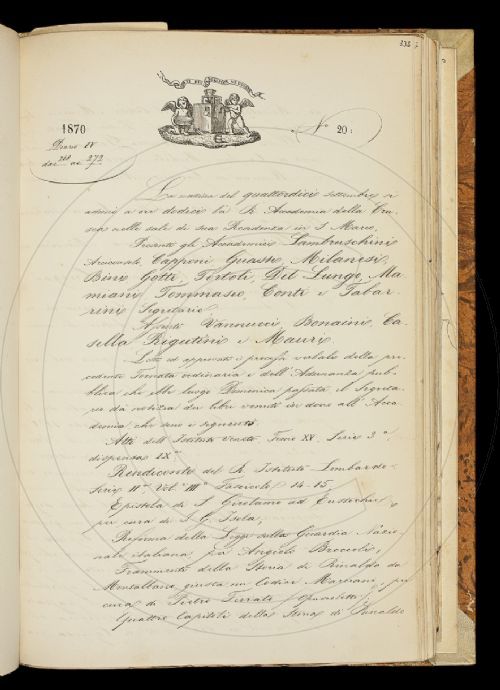 1870
Diario IV
dal 268 al 272
N.° 20:
La mattina del quattordici settembre si
adunò a ore dodici la R. Accademia della Cru-
sca nelle sale di sua Residenza in S. Marco,
Presenti gli Accademici Lambruschini
Arciconsolo Capponi Guasti, Milanesi,
Bini Gotti, Tortoli, Del Lungo, Ma
miani, Tommaseo, Conti e Tabar-
rini Segretario
Assenti Vannucci, Bonaini, Ca-
sella Rigutini e Mauri.
Letto ed approvato il processo verbale della pre-
cedente Tornata ordinaria e dell'Adunanza pub-
blica che ebbe luogo Domenica passata, il Segreta-
rio dà notizia dei libri venuti in dono all'Acca-
demia che sono i seguenti
Atti dell'Istituto Veneto, Tomo XV. Serie 3.a
dispensa IX.a
Rendiconti del R. Istituto Lombardo
Serie II.a Vol. III.° Fascicoli 14-15
Epistola di S. Girolamo ad Eustochio,
per cura di I. G. Isola,
Riforma della Legge sulla Guardia Nazio-
nale italiana, per Angiolo
Frammento della Storia di Rinaldo da
Montalbano, giusta un Codice per
cura di Pietro Ferrato (opuscoletto);
Quattro Capitoli della Storia di Rinaldo